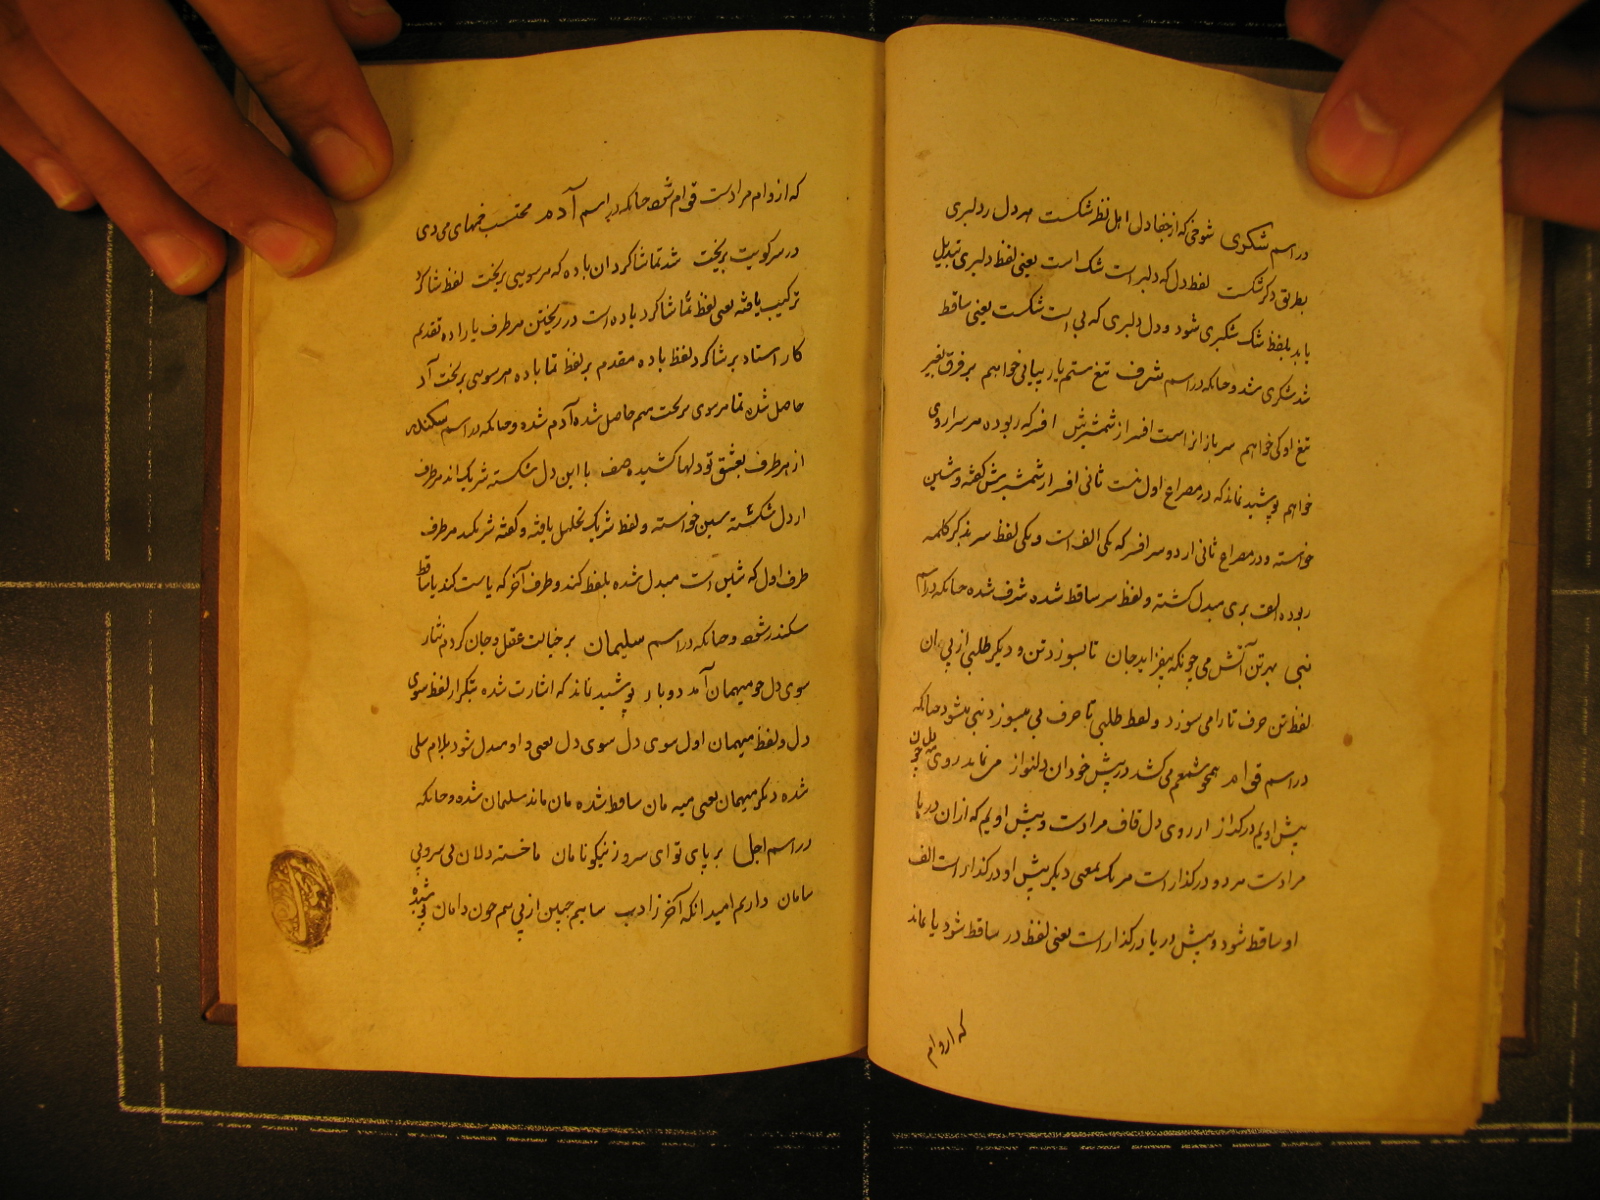 در اسم شکری شوخی که از جفا دل اهل نظر شکست هر دل ردلبری
بطریق دکر شکست لفظ دل که دلبر است شک است یعنی لفظ دلبری تبدیل
یابد بلفظ شک شکبری شود و دل دلبری که بی است شکست یعنی ساقط
شد شکری شد و چنانکه در اسم شرف تیغ ستم یار بیانی خواهم بر فرق بغیر
تیغ او کی خواهم سر باز از است افسر از شمشیرش افسر که ربوده هر سرار روی
خواهم پوشید نماند که در مصراع اول نیست ثانی افسر از شمشیرش کفته و شین
خواسته و در مصراع ثانی از دو سر افسر که یکی الف است و یکی لفظ سر بذکر کلمه
ربوده الف بری مبدل کشته و لفظ سر ساقط شده شرف شده چنانکه در اسم
نبی بهر تن آتش می چونکه بیفزاید جان تا بسوزد تن و دیکر طلبی از پی آن
لفظ تن حرف تا را می سوزد و لفظ طلبی تا حرف بی میسوزد نبی میشود چنانکه
در اسم قوام همچو شمعم می کشد در پیش خود آن دلنواز می نماید روی
پیش اویم در کداز از روی دل قاف مرادست و پیش اویم که از آن دریا
مرادست هر دو در کدازاست هر یک بمعنی دیکر پیش او در کدازاست الف
او ساقط شود و پیش دریا در کدازاست یعنی لفظ در ساقط شود یا نماند
که از وام
که از وام مرادست قوام شود چنانکه در اسم آدم محتسب خمهای می دی
در سر کویت بریخت شد تماشا کرد آن باده که هر سویی بریخت لفظ شاکرد
ترکیب یافته یعنی لفظ تما شاکرد باده است در ریختن هر طرف یا راده تقدیم
کار استاد بر شاکرد لفظ باده مقدم بر لفظ تما باده هر سویی بریخت آد
حاصل شده تما هر سوی بریخت هم حاصل شده آدم شده و چنانکه در اسم سکندر
از هر طرف بعشق تو دلها کشیده صف با این دل شکسته شریک اند هر طرف
از دل شکسته سین خواسته و لفظ شریک تحلیل یافته و کفته شر یکند هر طرف
طرف اول که شین است مبدل شده بلفظ کند و طرف آخر که یاست کند یا ساقط
سکندر شود و چنانکه در اسم سلیمان بر خیالت عقل و جان کردم نثار
سوی دل چو میهمان آمد دو بار پوشید نماند که اشارت شده بتکرار لفظ سوی
دل و لفظ میهمان اول سوی دل سوی دل یعنی و او مبدل شود بلام سلی
شده دیکر میهمان یعنی میه مان ساقط شده مان ماند سلیمان شده و چنانکه
در اسم اجل بر پای تو ای سرو ز نیکو نامان ما خسته دلان بی سر و بی
سامان داریم امید آنکه آخر ز ادب ساییم جبین از پی هم چون دامان